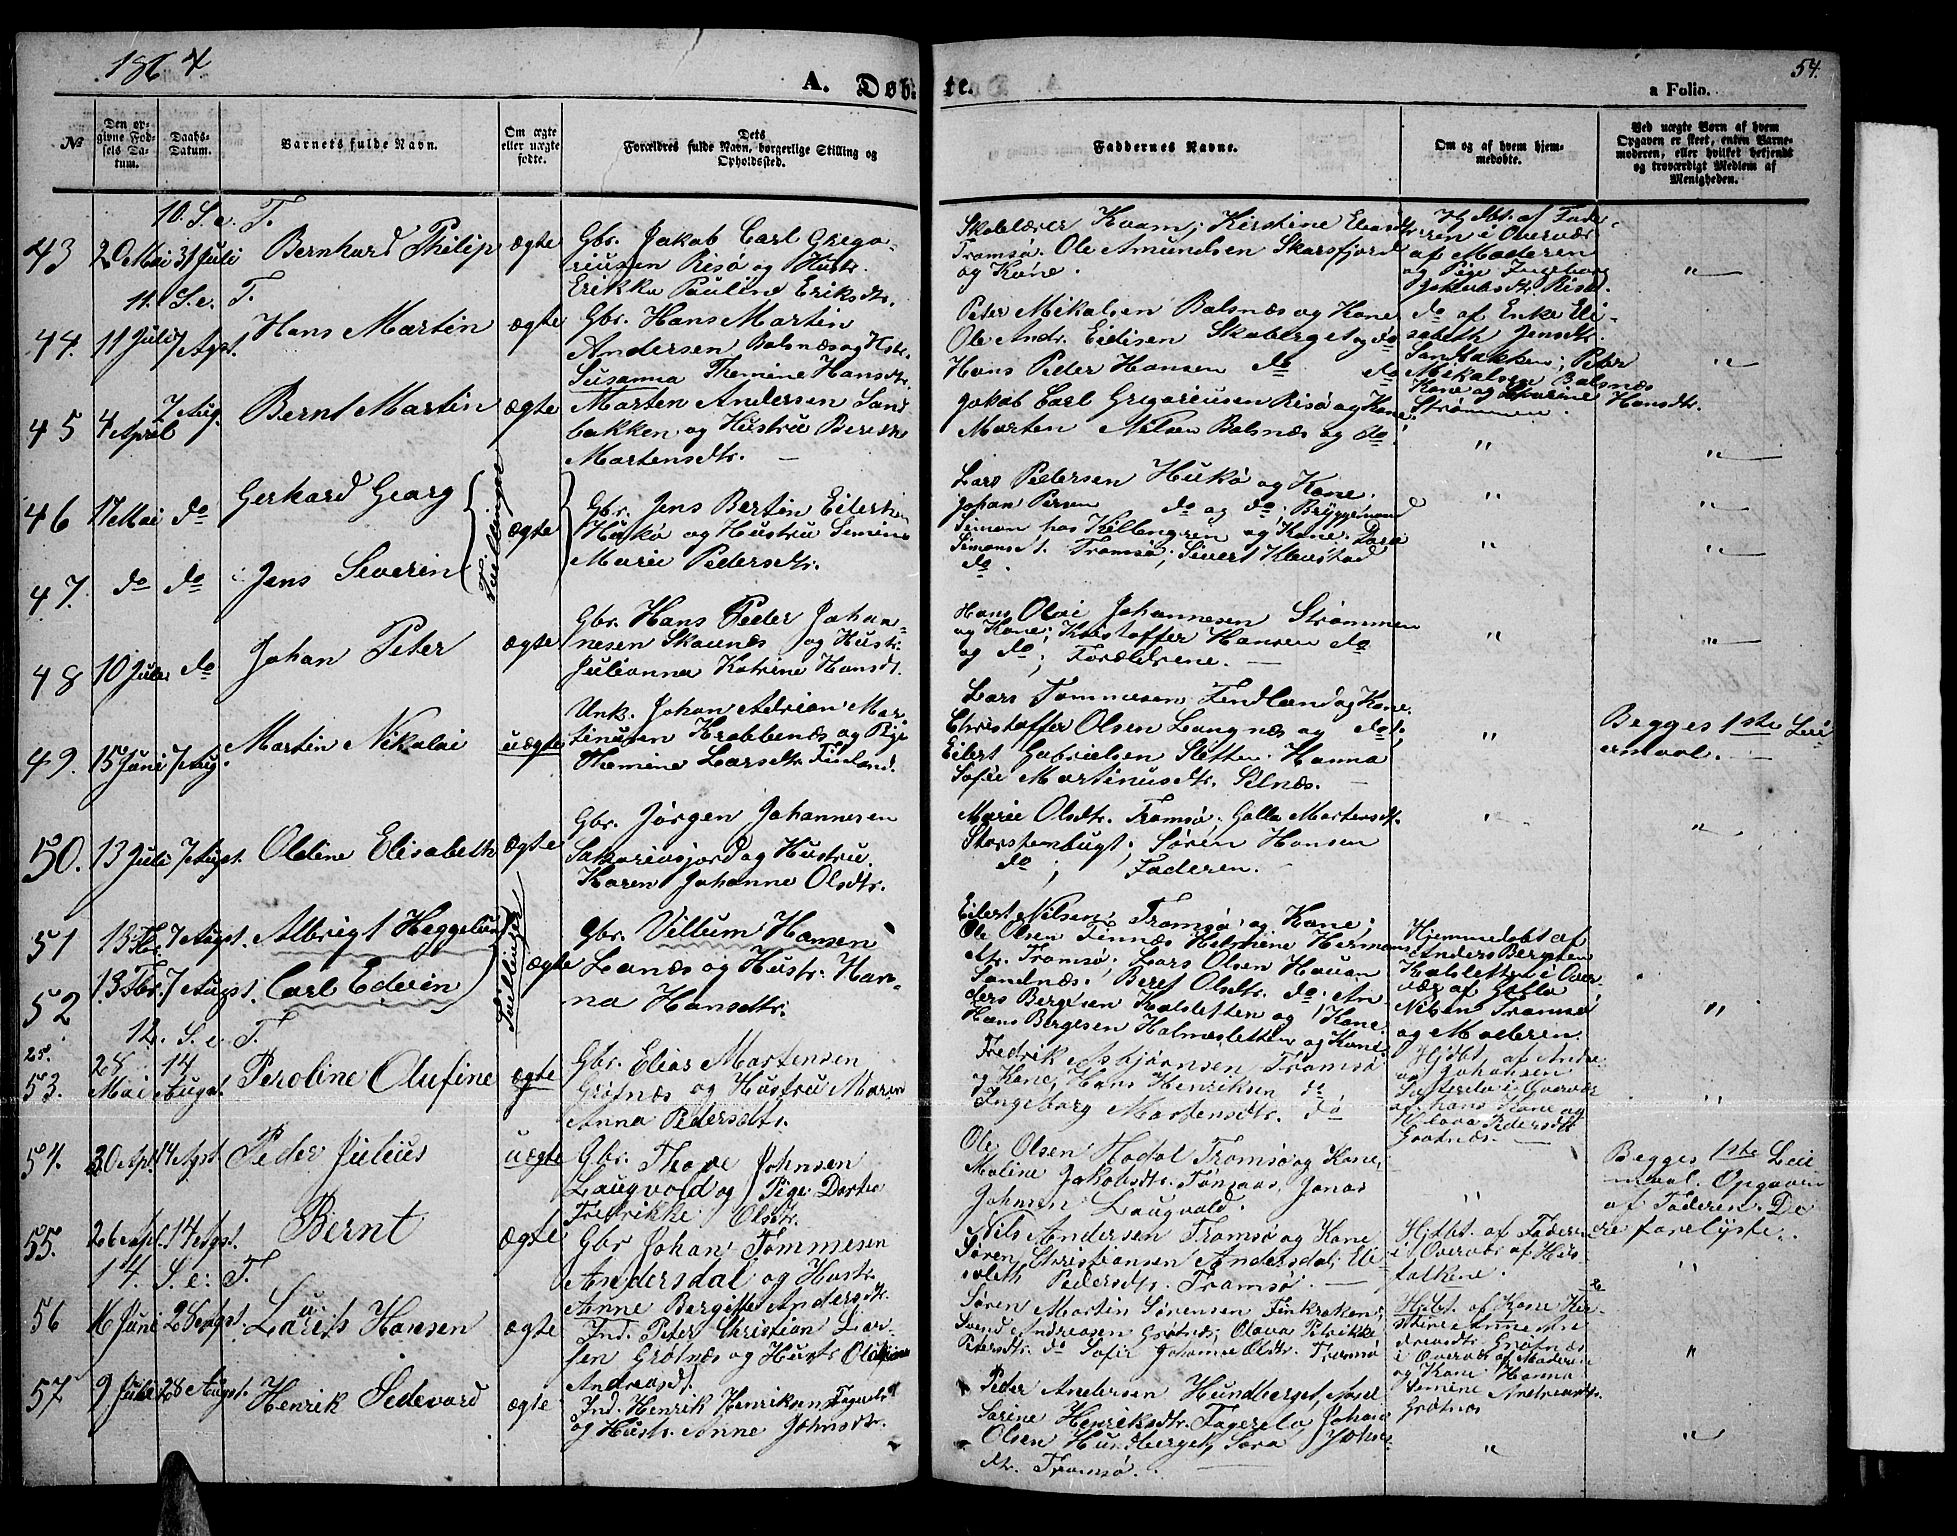 1864
54.
A. Døb-
te.
a Folio.
№
Den op-
givne Fød-
sels Da-
tum.
Daabs-
Datum.
Barnets fulde Navn.
Om ægte
eller uægte
fødte.
Dets
Forældres fulde Navn, borgerlige Stilling og
Opholdssted.
Faddernes Navne.
Om og af hvem hjem-
medøbte.
Ved uægte Børn af hvem
Opgaven er skeet, enten Barne-
moderen, eller hvilket bekjendt
og troværdigt Medlem af
Menigheden.
10. S. e. T.
43
20 Mai
31 Juli
Bernhard Philip
ægte
Gbr. Jakob Carl Grego-
riusen Risø og Hustr.
Erikka Pauline Eriksdtr.
Skolelærer Kvam; Kirstine
Tromsø. Ole Amundsen Skarsfjord
og Kone.
Hjdbt. af Fade-
ren i Overvær
af Moderen
og Pige Ingeborg
Jakobsdtr. Risø.
"
11. S. e. T.
44.
11 Juli
7 Agst.
Hans Martin
ægte
Gbr. Hans Martin
Andersen Balsnæs og Hstr.
Susanna Themine Hansdtr.
Peter Mikalsen Balsnæs og Kone
Ole Andr. Eidisen Skoberget og do
Hans Peder Hansen do do
do af Enke Eli-
sabeth Jensdtr.
Sandbakken; Peter
Mikalsen Balsnæs
Kone og Hansdtr.
Strømmen.
"
45
4 April
7 Aug.
Bernt Martin
ægte
Morten Andersen Sand
bakken og Hustru Berith
Mortensdtr.
Jakob Carl Gregoriusen Risø og Kone;
Morten Nilsen Balsnæs og do
"
"
46
17 Mai
do
Gerhard Georg
Tvillinger
ægte
Gbr. Jens Bertin Eilertsen
Hukø og Hustru Simine
Marie Pedersdtr.
Lars Pedersen Hukø og Kone.
Johan Persen do og do. Bryggemand
Simon hos Killengren og Kone; Dora
Simonsd. Tromsø; Sivert Havstad
do.
"
"
47.
do
do
Jens Severin
"
"
48
10 Juli
do
Johan Peter
ægte
Gbr. Hans Peder Johan-
nesen Skavnæs og Hustr.
Julianna Katrine Hansdt.
Hans Olai Johannesen Strømmen
og Kone; Kristoffer Hansen do
og do; Forældrene.
"
"
49.
15 Juni
7 Aug.
Martin Nikolai
uægte
Unk. Johan Adrian Mar-
tinusen Krabbenæs og Pige
Themine Larsdtr. Finland.
Lars Tommesen Findland og Kone.
Christoffer Olsen Langnæs og do.
Eilert Gabrielsen Sletten. Hanna
Sofie Martinusdtr. Selnæs.
"
Begges 1ste Lei
ermaal.
50.
13 Juli
7 Augst.
Oleline Elisabeth
ægte
Gbr. Jørgen Johannesen
Sakariasjord og Hustru
Karen Johanne Olsdtr.
Marie Olsdtr. Tromsø; Golla Mortensdtr.
Storstenbugt; Søren Hansen
do; Faderen.
"
"
51
13 Fbr.
7 Augst.
Albrigt Heggelun
Tvillinger
ægte
Gbr. Villum Hansen
Lanæs og Hustr. Han-
na Hansdtr.
Eilert Nilsen; Tromsø og Kone;
Ole Olsen Finnæs Helmine Herman
dtr. Tromsø; Lars Olsen Hauan
Sandnæs; Beret Olsdtr. do; An
ders Bergesen Kalsletten og Kone
Hans Bergesen Holmesletten og Kone.
Hjemmedøbt af
Anders Bergesen
Kalsletten i Over-
vær af Golla
Nilsen Tromsø
og Moderen.
"
52
13 Fbr.
7 Augst.
Carl Edvin
12. S. e. T.
53.
28
Mai
14
Augst.
Peroline Olufine
ægte
Gbr. Elias Mortensen
Grøtnæs og Hustru Maren
Anna Pedersdtr.
Fredrik Asbjørnsen Tromsø
og Kone, Hans Henriksen do
Ingeborg Mortensdtr. do
Hjdbt. af Andre
as Johansen
i Overvær
af hans Kone og
Pedersdt
Grøtnæs.
"
54.
30 Apl.
14 Agst.
Peder Julius
uægte
Gbr. Thore Johnsen
Laugvold og Pige Dorthe
Fredrikke Olsdtr.
Ole Olsen Hodal Tromsø og Kone;
Malina Jakobsdtr. Tønsaas, Jonas
Johnsen Laugvold.
"
Begges 1ste Leie
maal. Opgaven
af Faderen. De
re forelyste.
55.
26 Apl.
14 Agst.
Bernt
ægte
Gbr Johan Tommesen
Andersdal og Hustr.
Anne Bergitte Andersdtr.
Nils Andersen Tromsø og Kone
Søren Christiansen Andersdal; Eli-
sabeth Pedersdtr. Tromsø.
Hjdbt. af Faderen
i Overvær af Hus-
folkene.
"
14. S. e. T.
56
16 Juni
28 Augst.
Laurits Hansen
ægte
Ind. Peter Christian Lar-
sen Grøtnæs og Hustr.
Andreasdt.
Søren Martin Sørensen Finkroken;
Svend Andreasen Grøtnæs; Olava Petrikke
Petersdtr. do Sofie Johanna Olsdtr. Tromsø
Hjdbt. af Kone Kir-
stine Anne An
dreasdtr. Grøtnæs
i Overvær af Moderen
og Kone Hanna
Andreasdtr.
Grøtnæs
"
57.
9 Juli
28 Augst.
Henrik Sedevard
ægte
Ind. Henrik Henriksen
og Hustr. Anne Johnsdtr.
Peder Andersen Hundberget,
Sarine Henriksdtr. Fagerelv Johan
Olsen Hundberget, Sara Johns-
dtr. Tromsø.
"
"